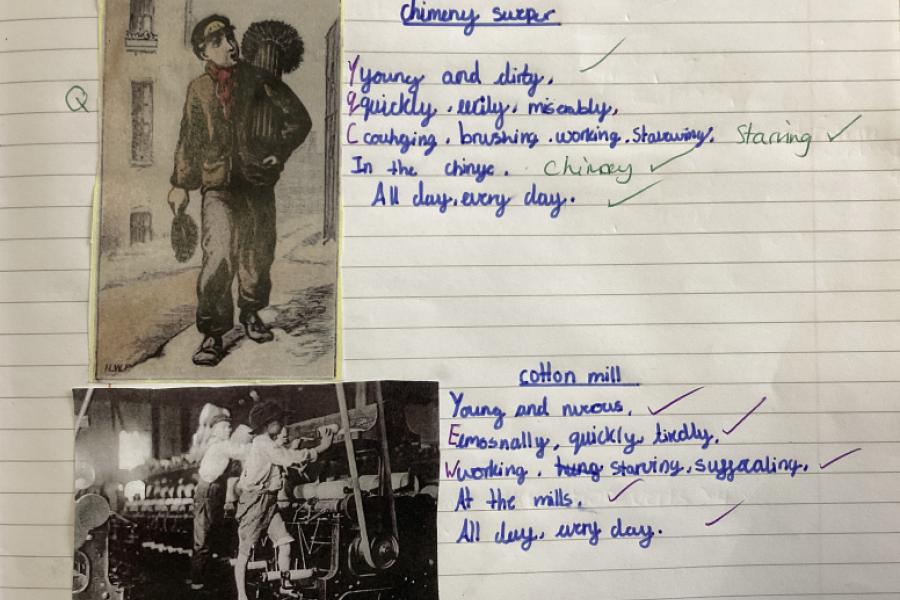 chimeny sweper
Q
Yyoung and dirty,
quickly, miserably,
Ccoughing, brushing, working, Staraving. Starving
In the chinye. Chimney
All day, every day.
H.W.P
cotton mill
Young and nurous,
Eemosnally, quickly, tiredly,
Wworking, hung starving, suffacating,
At the mills,
All day, every day.